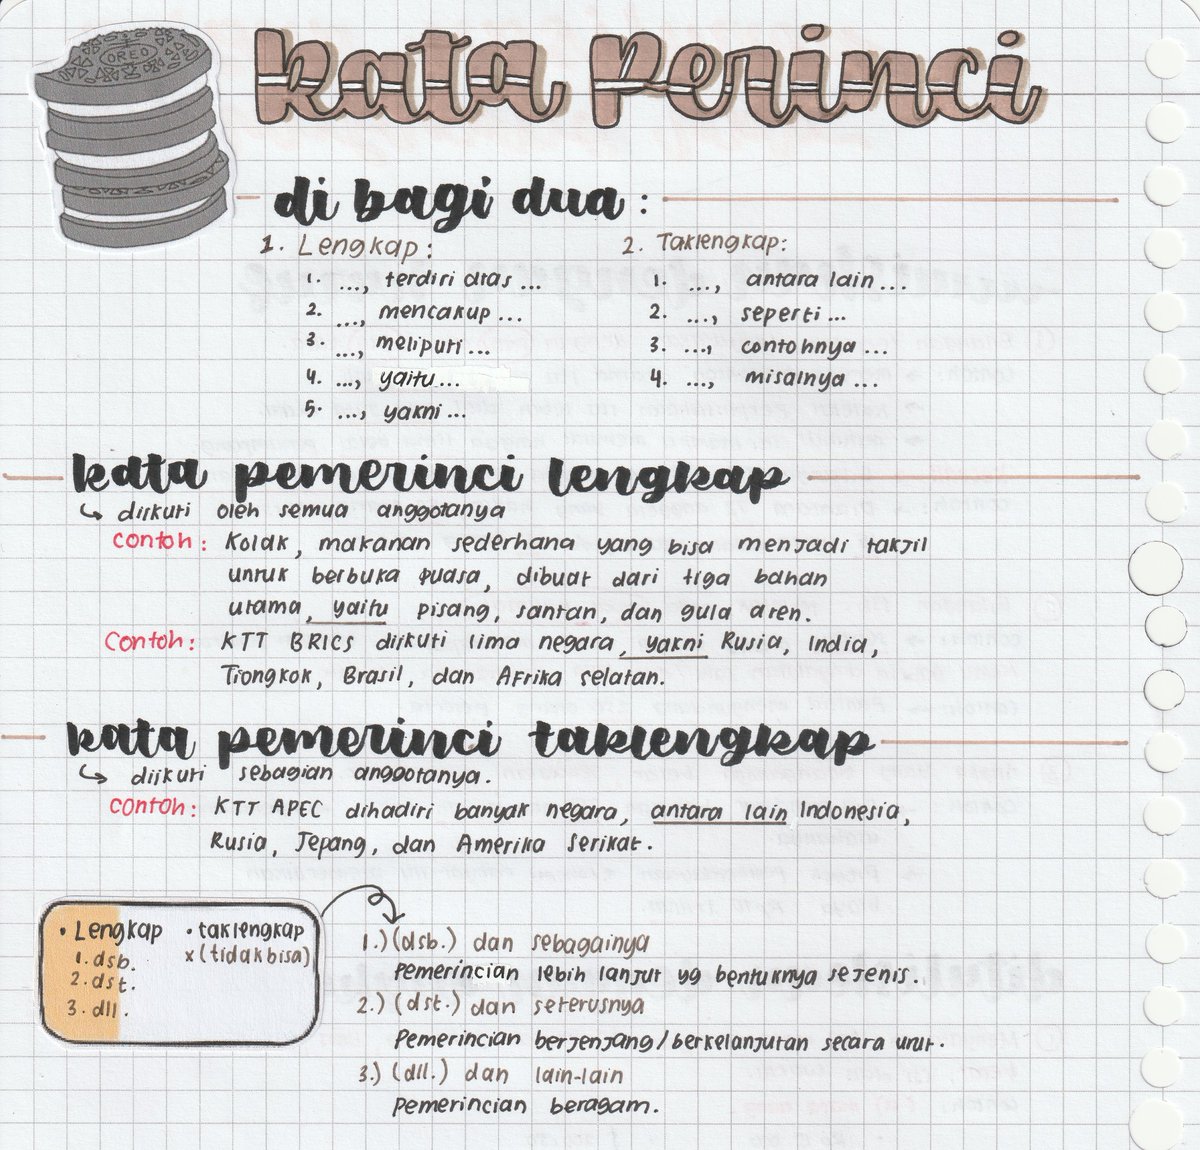 OREO
kata perinci
di bagi dua :
1. Lengkap :
1. ..., terdiri atas ...
2. ..., mencakup ...
3. ..., meliputi ...
4. ..., yaitu ...
5. ..., yakni ...
2. Taklengkap :
1. ..., antara lain ...
2. ..., seperti ...
3. ..., contohnya ...
4. ..., misalnya ...
kata pemerinci lengkap
↳ diikuti oleh semua anggotanya
contoh : Kolak, makanan sederhana yang bisa menjadi takjil
untuk berbuka puasa, dibuat dari tiga bahan
utama, yaitu pisang, santan, dan gula aren.
Contoh : KTT BRICS diikuti lima negara, yakni Rusia, India,
Tiongkok, Brasil, dan Afrika selatan.
kata pemerinci taklengkap
↳ diikuti sebagian anggotanya.
contoh : KTT APEC dihadiri banyak negara, antara lain Indonesia,
Rusia, Jepang, dan Amerika Serikat.
• Lengkap
1. dsb.
2. dst.
3. dll.
• taklengkap
x (tidak bisa)
1.) (dsb.) dan sebagainya
Pemerincian lebih lanjut yg bentuknya sejenis.
2.) (dst.) dan seterusnya
Pemerincian berjenjang/berkelanjutan secara urut.
3.) (dll.) dan lain-lain
Pemerincian beragam.